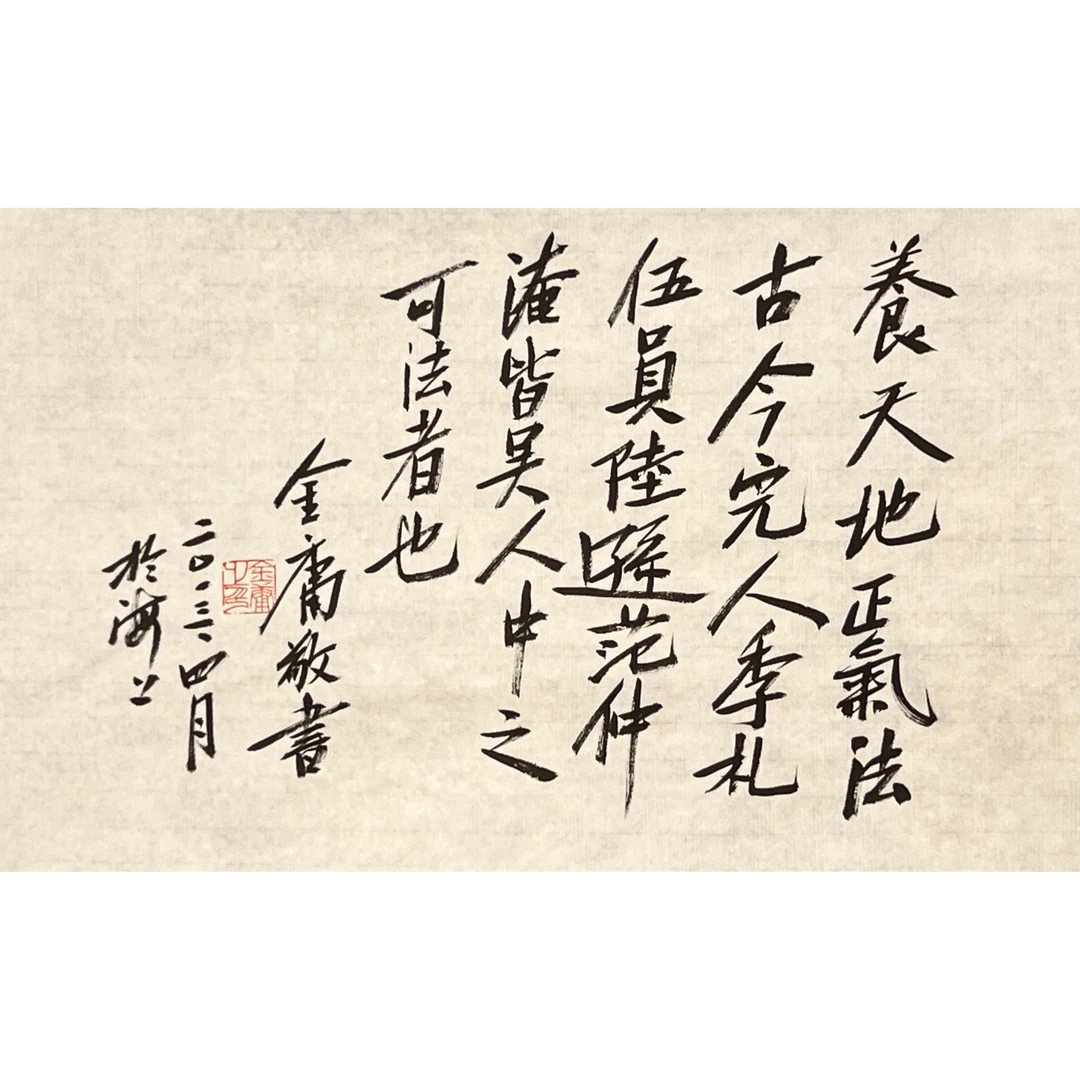 養天地正氣法
古今完人季札
伍員陸遜范仲
淹皆吳人中之
可法者也
金庸敬書
金庸之印
二〇〇三、四月
於海上